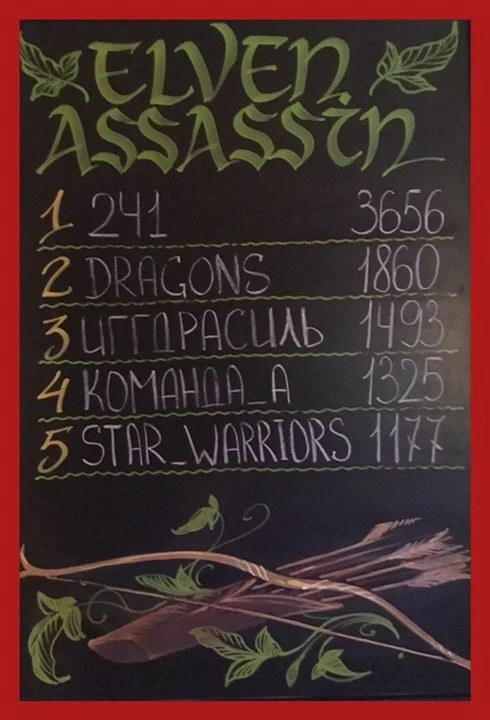 ELVEN
ASSASSIN
1 241 3656
2 DRAGONS 1860
3 ИГГДРАСИЛЬ 1493
4 КОМАНДА_А 1325
5 STAR_WARRIORS 1177